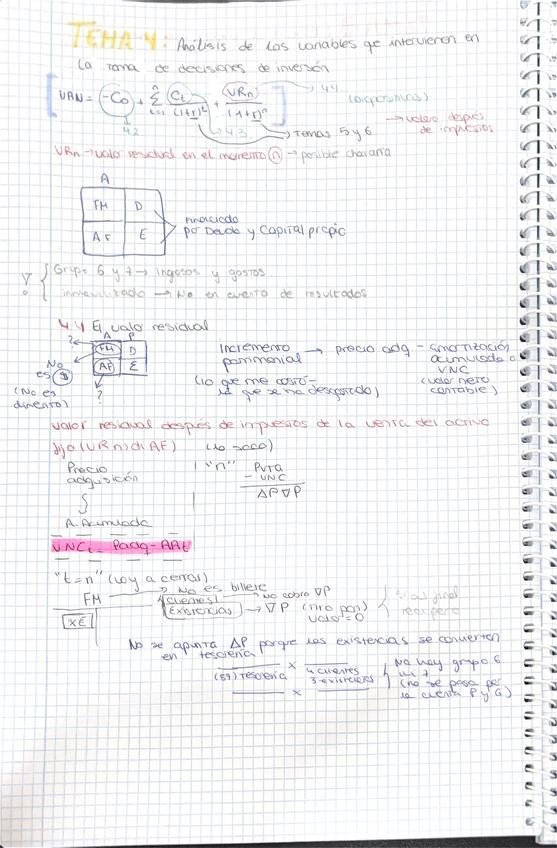 TEMA 4: Análisis de las variables qe intervienen en
la toma de decisiones de inversión
VAN = -Co + Σ Ct/(1+r)^t + VRn/(1+r)^n 4.4 (diapositivas)
n t=1
4.2 4.3 Temas 5 y 6 → valor después de impuestos
VRn → valor residual en el momento n → posible chatarra
A
FM D
AF E
Financiado
por Deuda y Capital propio
Grupo 6 y 7 → Ingresos y gastos
inmovilizado → No en cuenta de resultados
4.4 El valor residual
A P
? FM D
AF E
No es $
(No es dinero)
?
Incremento patrimonial → precio adq - amortización acumulada o VNC
(lo que me costó - lo que se ha desgastado) (valor neto contable)
Valor residual después de impuestos de la venta del activo
fijo (VRn) di AF) (lo saco)
Precio adquisición
A. Acumulada
"n" PVTA
- VNC
ΔP ∇P
VNCt = Padq - AAt
"t=n" (voy a cerrar)
FM → No es billete
X€
clientes → no cobro ∇P
Existencias → ∇P
valor = 0
al final recupero
No se apunta ΔP porque las existencias se convierten
en tesorería
(57) Tesorería x 4 clientes
3 existencias
x
No hay grupo 6 ni 7
(no se pasa por la cuenta P y G)